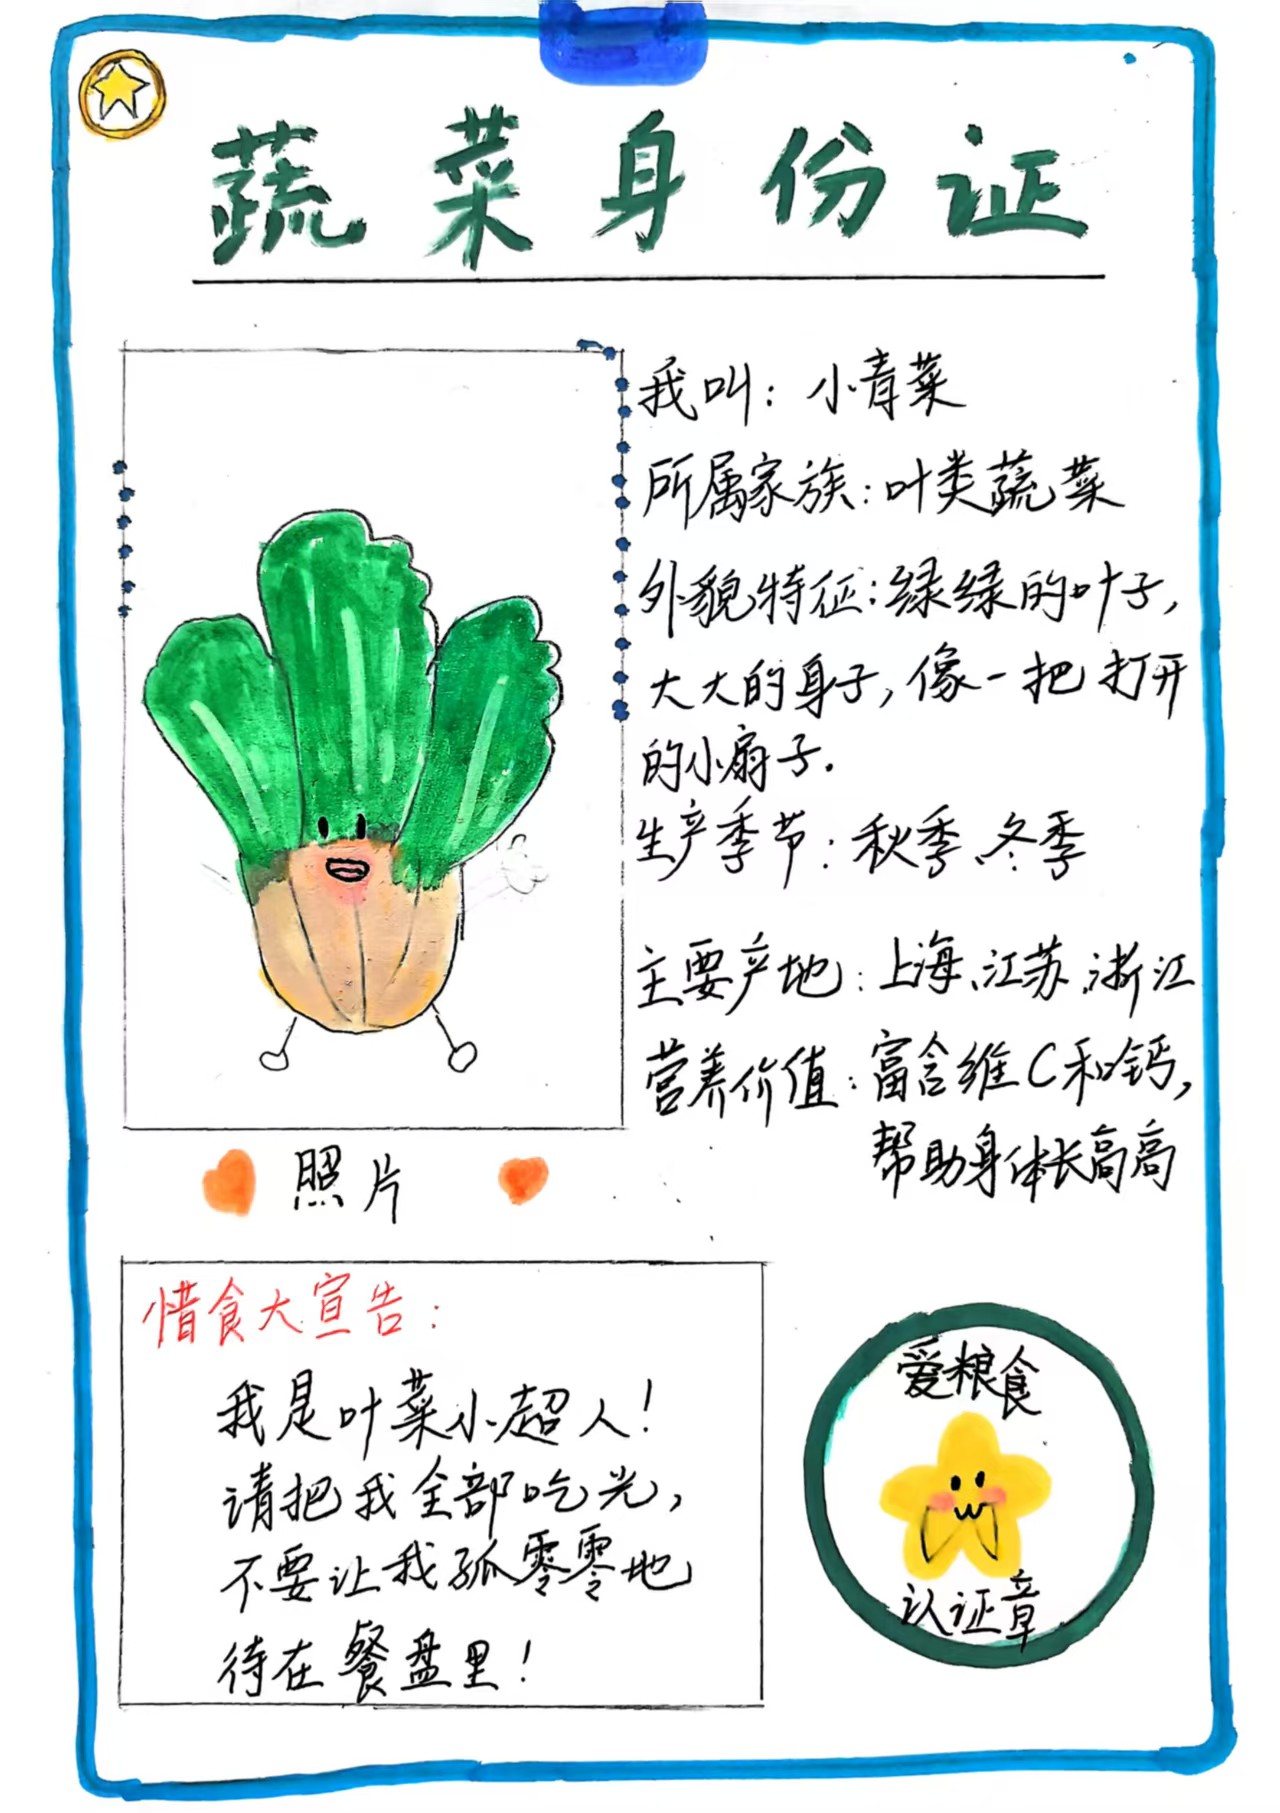 蔬菜身份证
我叫：小青菜
所属家族：叶类蔬菜
外貌特征：绿绿的叶子，
大大的身子，像一把打开
的小扇子.
生产季节：秋季、冬季
主要产地：上海、江苏、浙江
营养价值：富含维C和钙，
帮助身体长高高
照片
惜食大宣告：
我是叶菜小超人！
请把我全部吃光，
不要让我孤零零地
待在餐盘里！
爱粮食
认证章